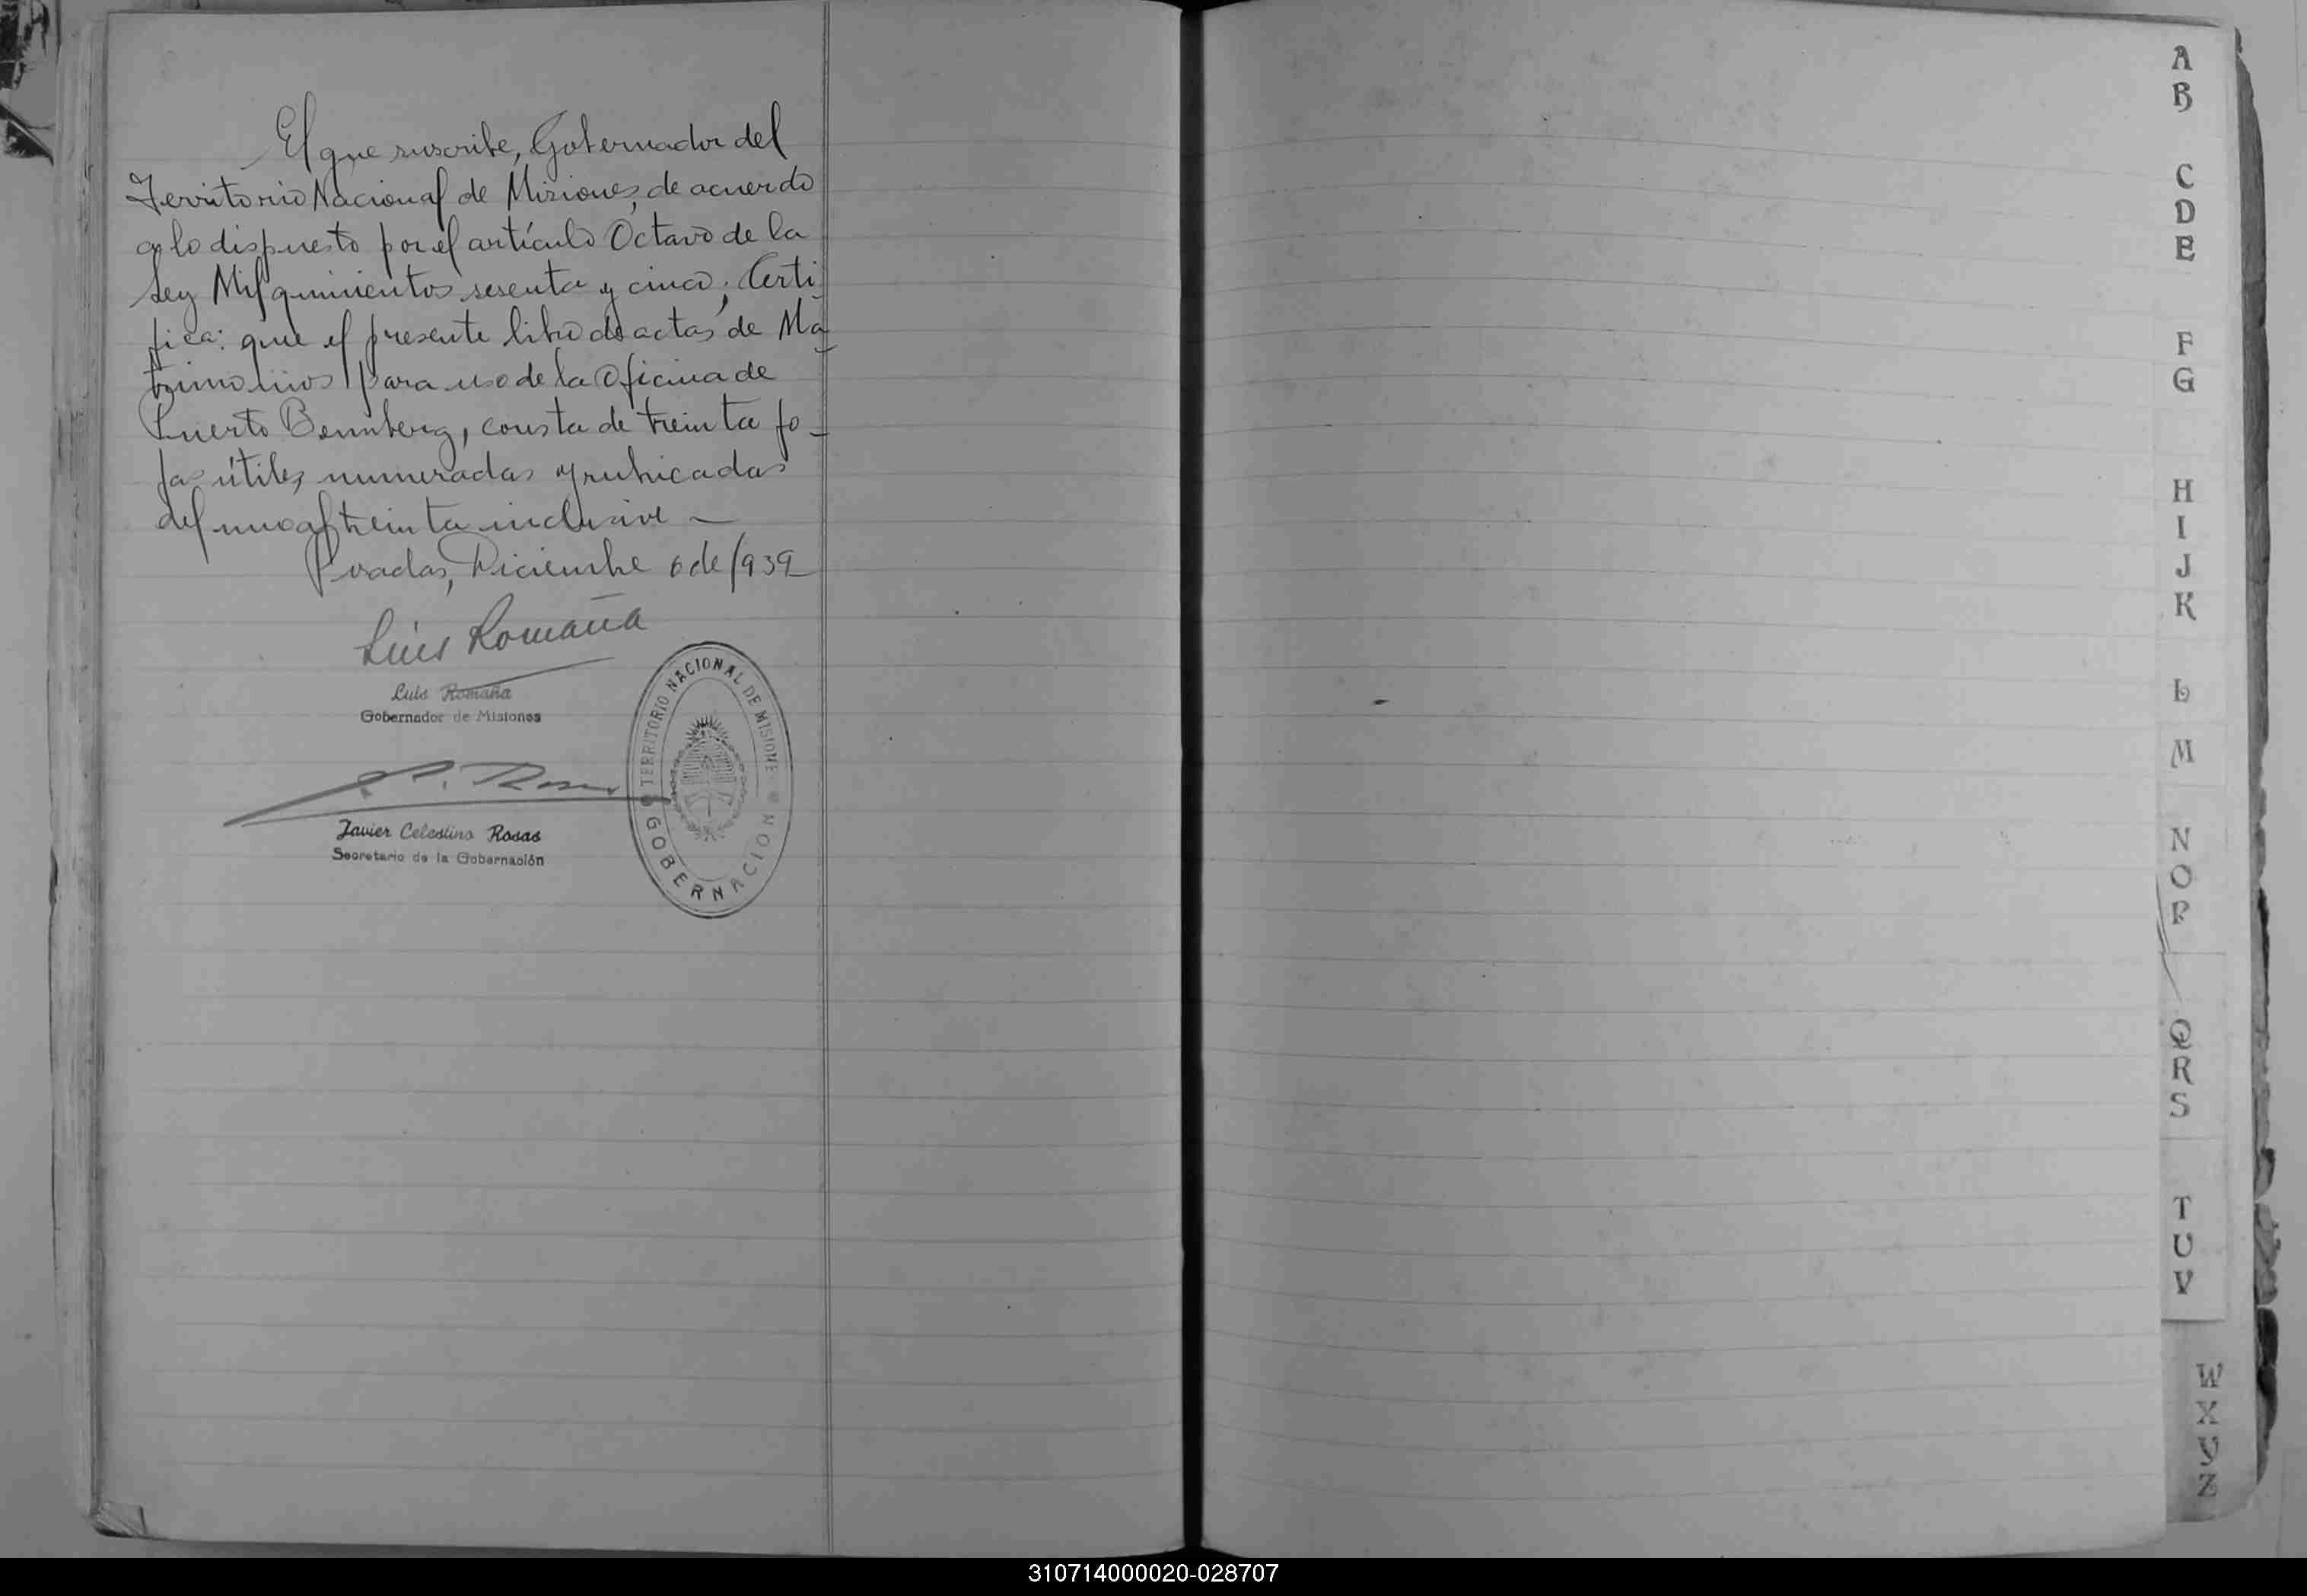 El que suscribe, Gobernador del
Territorio Nacional de Misiones, de acuerdo
a lo dispuesto por el artículo Octavo de la
Ley Mil quinientos sesenta y cinco; Certi-
fica: que el presente libro de actas de Ma-
trimonios para uso de la Oficina de
Puerto Bemberg, consta de treinta fo-
jas útiles, numeradas y rubricadas
del uno al treinta inclusive —
Posadas, Diciembre 6 de 1939
Luis Romaña
Luis Romaña
Gobernador de Misiones
Javier Celestino Rosas
Secretario de la Gobernación
TERRITORIO NACIONAL DE MISIONE
GOBERNACION
A
B
C
D
E
F
G
H
I
J
K
L
M
N
O
P
Q
R
S
T
U
V
W
X
Y
Z
310714000020-028707